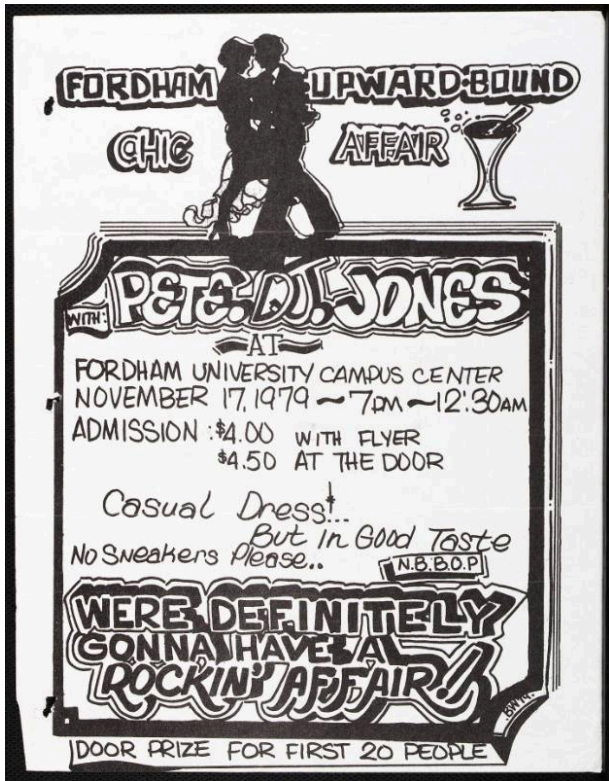 FORDHAM UPWARD BOUND
CHIC AFFAIR
WITH: PETE. DJ. JONES
AT
FORDHAM UNIVERSITY CAMPUS CENTER
NOVEMBER 17, 1979 ~ 7PM ~ 12:30AM
ADMISSION: $4.00 WITH FLYER
$4.50 AT THE DOOR
Casual Dress!...
But in Good Taste
No Sneakers Please..
N.B.B.O.P
WERE DEFINITELY
GONNA HAVE A
ROCKIN' AFFAIR!!
DOOR PRIZE FOR FIRST 20 PEOPLE